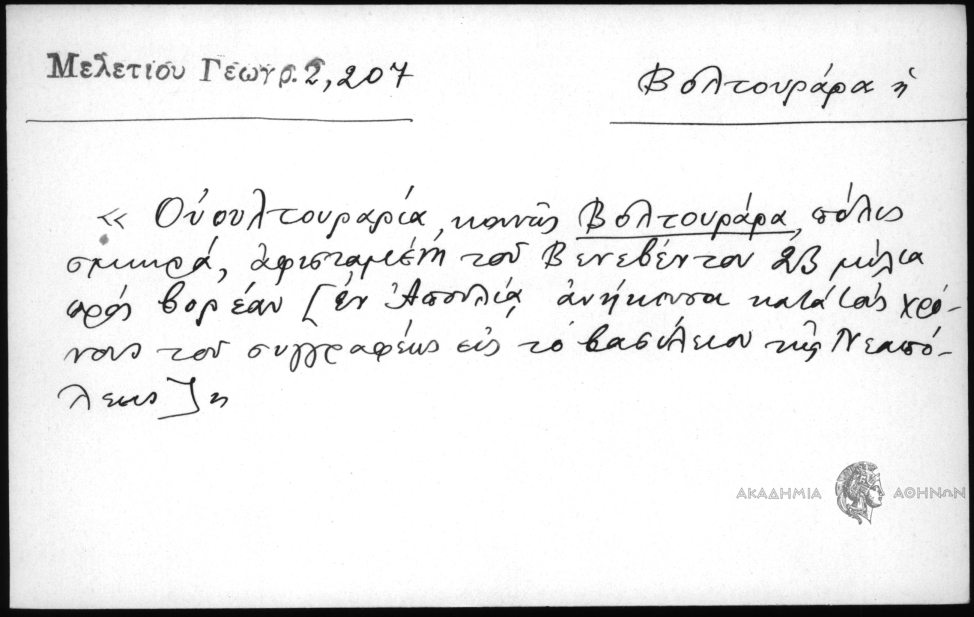 Μελετίου Γεωγρ. 2, 207
Βολτουράρα ἡ
« Οὐουλτουραρία, κοινῶς Βολτουράρα, πόλις
σμικρά, ἀφισταμένη τοῦ Βενεβέντου 23 μίλια
πρός βορέαν [ἐν Ἀπουλίᾳ ἀνήκουσα κατά τούς χρό-
νους τοῦ συγγραφέως εἰς τό βασίλειον τῆς Νεαπό-
λεως] »
ΑΚΑΔΗΜΙΑ ΑΘΗΝΩΝ